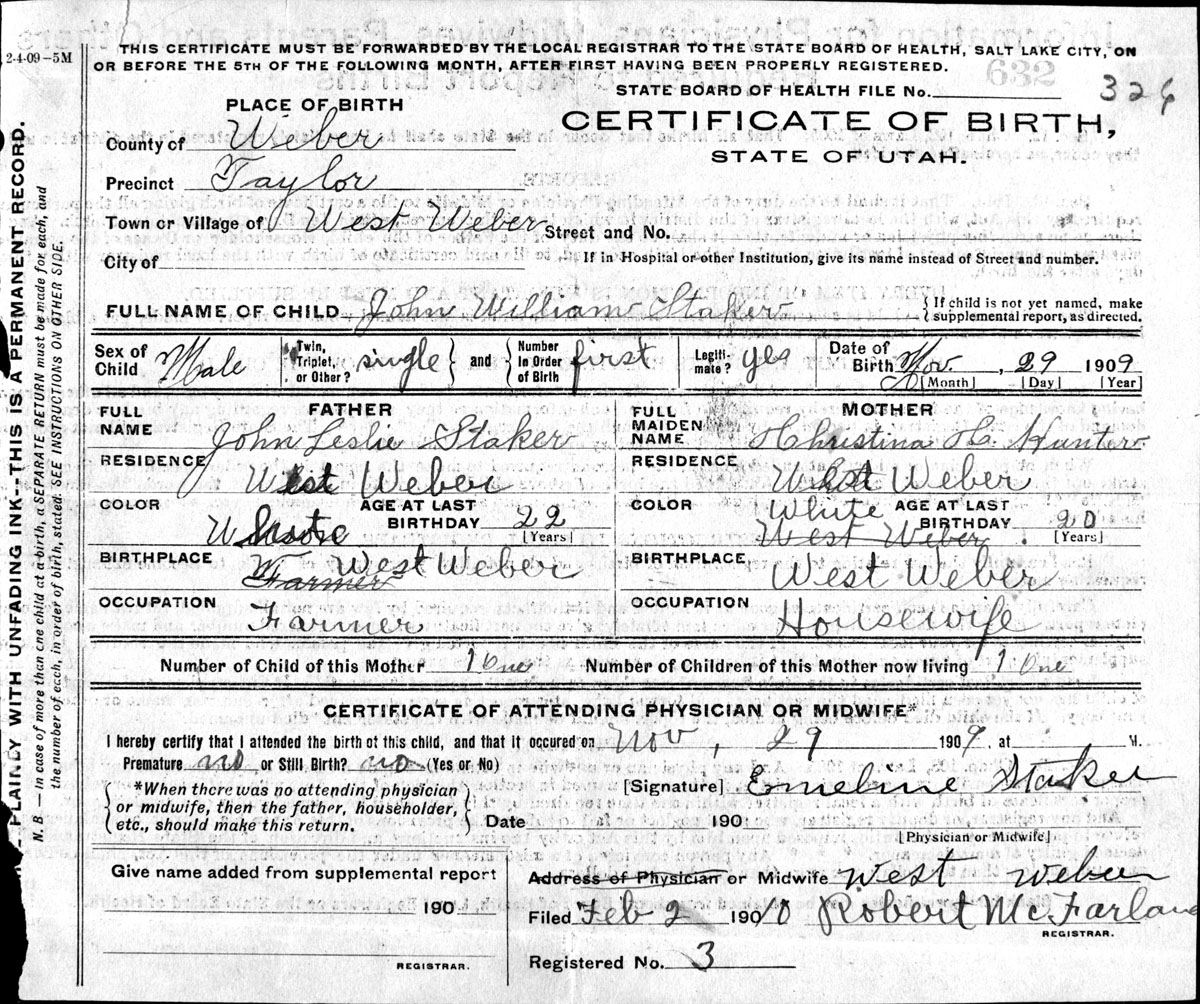 THIS CERTIFICATE MUST BE FORWARDED BY THE LOCAL REGISTRAR TO THE STATE BOARD OF HEALTH, SALT LAKE CITY, ON
2-4-09-5M
OR BEFORE THE 5TH OF THE FOLLOWING MONTH, AFTER FIRST HAVING BEEN PROPERLY REGISTERED.
632
STATE BOARD OF HEALTH FILE No. 326
PLACE OF BIRTH
CERTIFICATE OF BIRTH,
County of Weber
STATE OF UTAH.
Precinct Taylor
Town or Village of West Weber Street and No.
City of If in Hospital or other Institution, give its name instead of Street and number.
FULL NAME OF CHILD John William Staker {If child is not yet named, make supplemental report, as directed.
Sex of Child Male Twin, Triplet, or Other? single } and { Number in Order of Birth first Legiti-mate? yes Date of Birth Nov. , 29 1909
[Month] [Day] [Year]
FATHER
FULL NAME John Leslie Staker
RESIDENCE West Weber
COLOR White AGE AT LAST BIRTHDAY 22 [Years]
BIRTHPLACE Farmer West Weber
OCCUPATION Farmer
MOTHER
FULL MAIDEN NAME Christina H. Hunter
RESIDENCE West Weber
COLOR White AGE AT LAST BIRTHDAY 20 [Years]
West Weber
BIRTHPLACE West Weber
OCCUPATION Housewife
Number of Child of this Mother 1 One Number of Children of this Mother now living 1 One
CERTIFICATE OF ATTENDING PHYSICIAN OR MIDWIFE*
I hereby certify that I attended the birth of this child, and that it occured on Nov , 29 1909, at M.
Premature no or Still Birth? no (Yes or No)
{*When there was no attending physician or midwife, then the father, householder, etc., should make this return.}
[Signature] Emeline Staker
Date 190
[Physician or Midwife]
Give name added from supplemental report
190
REGISTRAR.
Address of Physician or Midwife West Weber
Filed Feb 2 1910 Robert McFarland
REGISTRAR.
Registered No. 3
PLAINLY WITH UNFADING INK---THIS IS A PERMANENT RECORD.
N. B. — In case of more than one child at a birth, a SEPARATE RETURN must be made for each, and
the number of each, in order of birth, stated. SEE INSTRUCTIONS ON OTHER SIDE.